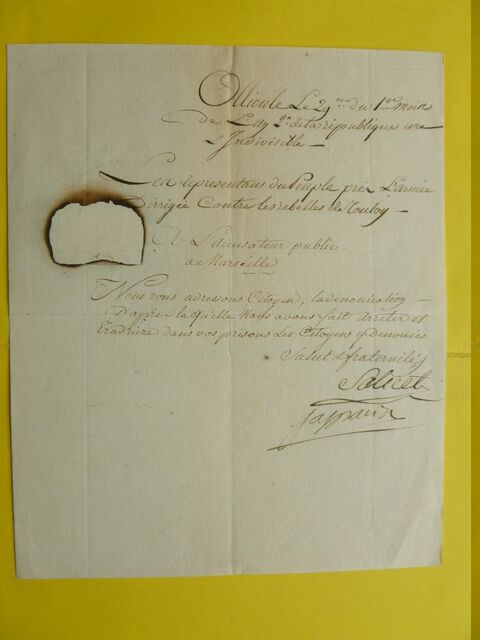 Ollioule Le 29me. du 1er mois
de L'an 2e. de la république une
& Indivisible —
Les représentans du Peuple près L'armée
Dirrigée Contre les rebelles de Toulon —
A L'accusateur public
a Marseille
Nous vous adressons Citoyen, la dénonciation —
D'après laquelle Nous avons fait arrêter et
traduire dans vos prisons Les Citoyens y dénoncés
Salut & fraternité
Saliceti
Gasparin